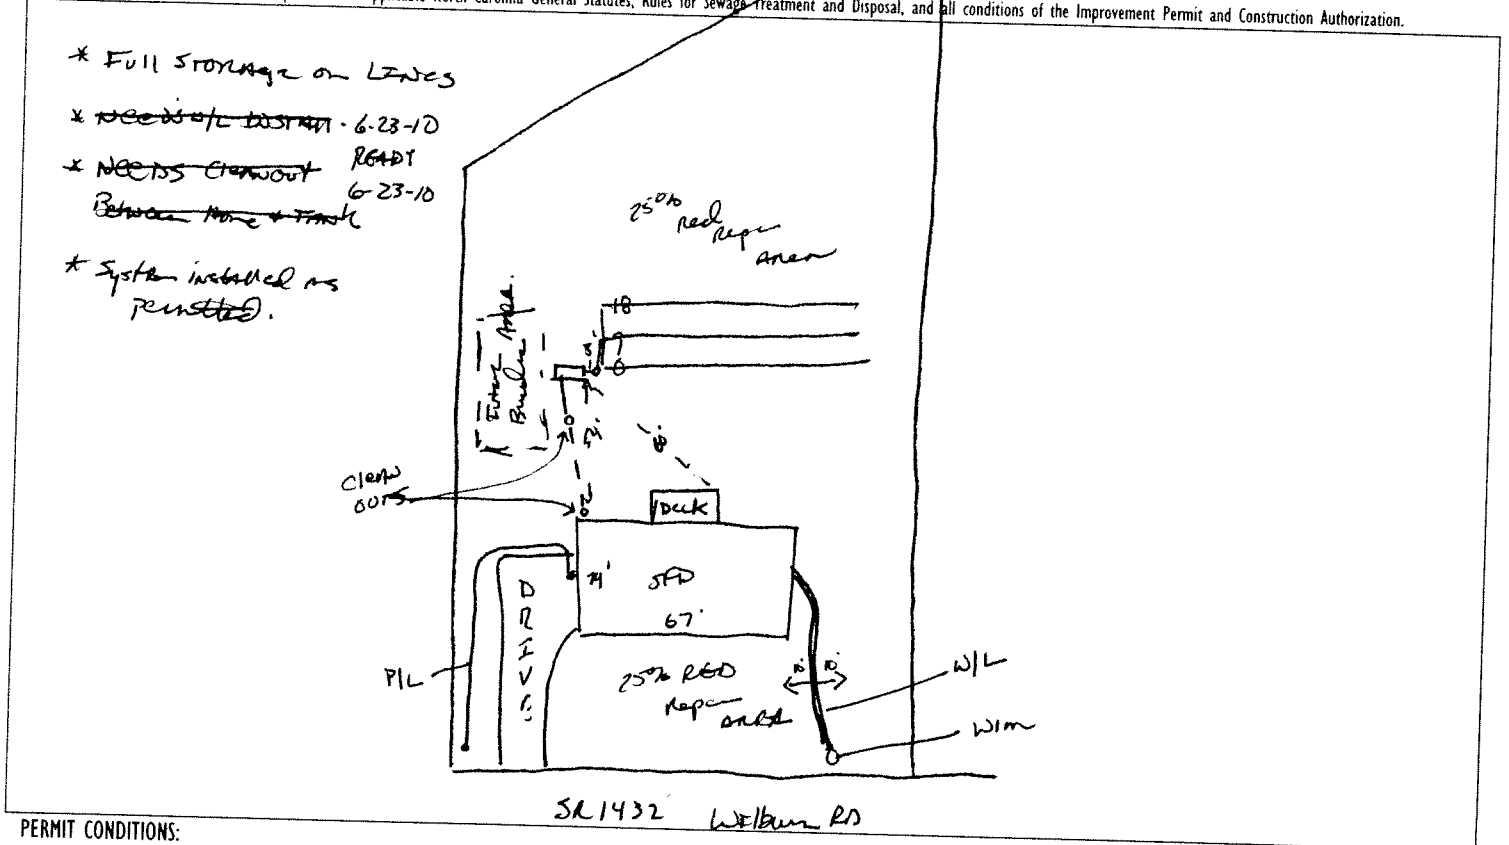 General Statutes, Rules for Sewage Treatment and Disposal, and all conditions of the Improvement Permit and Construction Authorization.
* Full Storage on Lines
* Needs W/L - 6-23-10
* Needs Cleanout READY
6-23-10
Between Home & Tank
* System installed as
permitted.
25% Red
Repair
Area
18
Future
Area.
Clean
outs
Deck
SFD
67'
DRIVE
P/L
25% RED
Repair
AREA
10' 10'
W/L
W/M
SR 1432 Wilburn RD
PERMIT CONDITIONS: